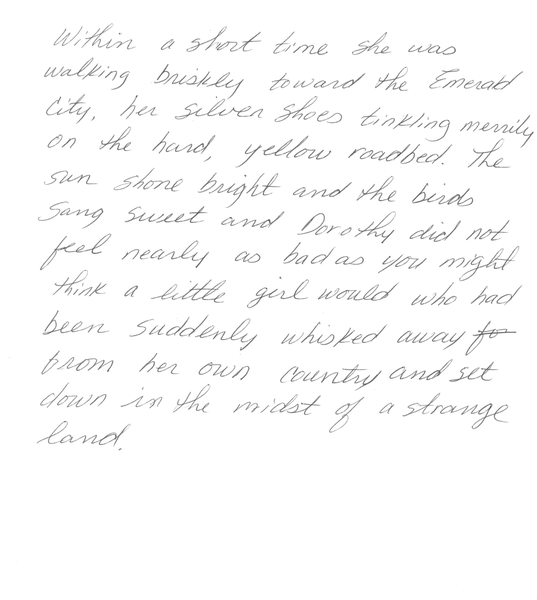 Within a short time she was
walking briskly toward the Emerald
City, her silver shoes tinkling merrily
on the hard, yellow roadbed. The
sun shone bright and the birds
sang sweet and Dorothy did not
feel nearly as bad as you might
think a little girl would who had
been suddenly whisked away fo
from her own country and set
down in the midst of a strange
land.